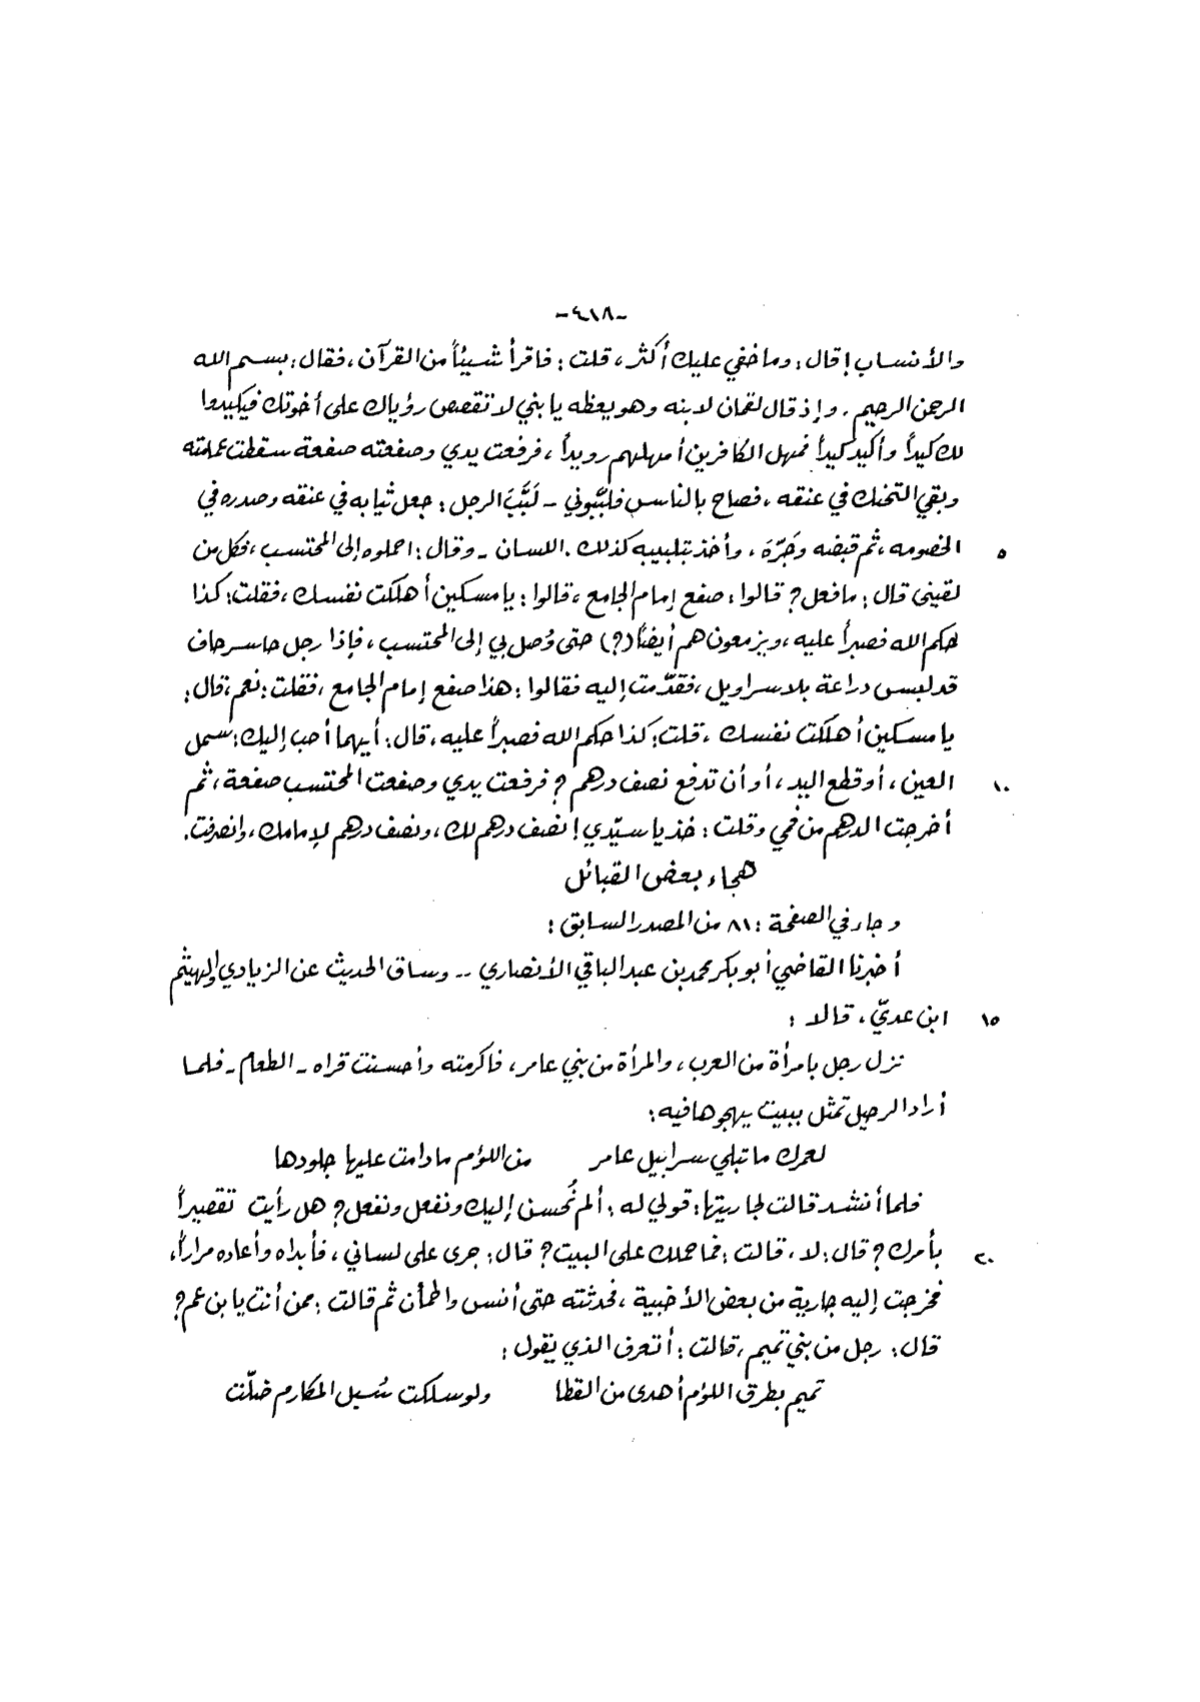 -٤١٨-
والأنساب! قال: وما خفي عليك أكثر، قلت: فاقرأ شيئاً من القرآن، فقال: بسم الله
الرحمن الرحيم. وإذ قال لقمان لابنه وهو يعظه يا بني لا تقصص رؤياك على أخوتك فيكيدوا
لك كيداً وأكيد كيداً فمهل الكافرين أمهلهم رويداً، فرفعت يدي وصفعته صفعة سقطت عمامته
وبقي التحنك في عنقه، فصاح بالناس فلبَّبوني - لَبَّبَ الرجل: جعل ثيابه في عنقه وصدره في
٥ الخصومه، ثم قبضه وَجَرّهَ، وأخذ بتلبيبه كذلك. اللسان - وقال: احملوه إلى المحتسب، فكل من
لقيني قال: ما فعل؟ قالوا: صفع إمام الجامع، قالوا: يا مسكين أهلكت نفسك، فقلت: كذا
حكم الله فصبراً عليه، ويزمعون هم أيضاً (؟) حتى وُصل بي إلى المحتسب، فإذا رجل حاسر حاف
قد لبس دراعة بلا سراويل، فقدّمت إليه فقالوا: هذا صفع إمام الجامع، فقلت: نعم، قال:
يا مسكين أهلكت نفسك، قلت: كذا حكم الله فصبراً عليه، قال: أيهما أحب إليك: سمل
١٠ العين، أو قطع اليد، أو أن تدفع نصف درهم؟ فرفعت يدي وصفعت المحتسب صفعة، ثم
أخرجت الدرهم من فمي وقلت: خذ يا سيّدي! نصف درهم لك، ونصف درهم لإمامك، وانصرفت.
هجاء بعض القبائل
وجاء في الصفحة: ٨١ من المصدر السابق:
أخبرنا القاضي أبو بكر محمد بن عبد الباقي الأنصاري -- وساق الحديث عن الزيادي والهيثم
١٥ ابن عديّ، قالا:
نزل رجل بامرأة من العرب، والمرأة من بني عامر، فاكرمته وأحسنت قراه - الطعام - فلما
أراد الرحيل تمثل ببيت يهجوها فيه:
لعمرك ما تبلي سرابيل عامر من اللؤم ما دامت عليها جلودها
فلما أنشد قالت لجاريتها: قولي له: ألم نُحسن إليك ونفعل ونفعل؟ هل رأيت تقصيراً
٢٠ بأمرك؟ قال: لا، قالت: فما حملك على البيت؟ قال: جرى على لساني، فأبداه وأعاده مراراً،
فخرجت إليه جارية من بعض الأخبية، فحدثته حتى أنس واطمأن ثم قالت: ممن أنت يا بن عم؟
قال: رجل من بني تميم، قالت: أتعرف الذي يقول:
تميم بطرق اللؤم أهدى من القطا ولو سلكت سُبل المكارم ضلّت